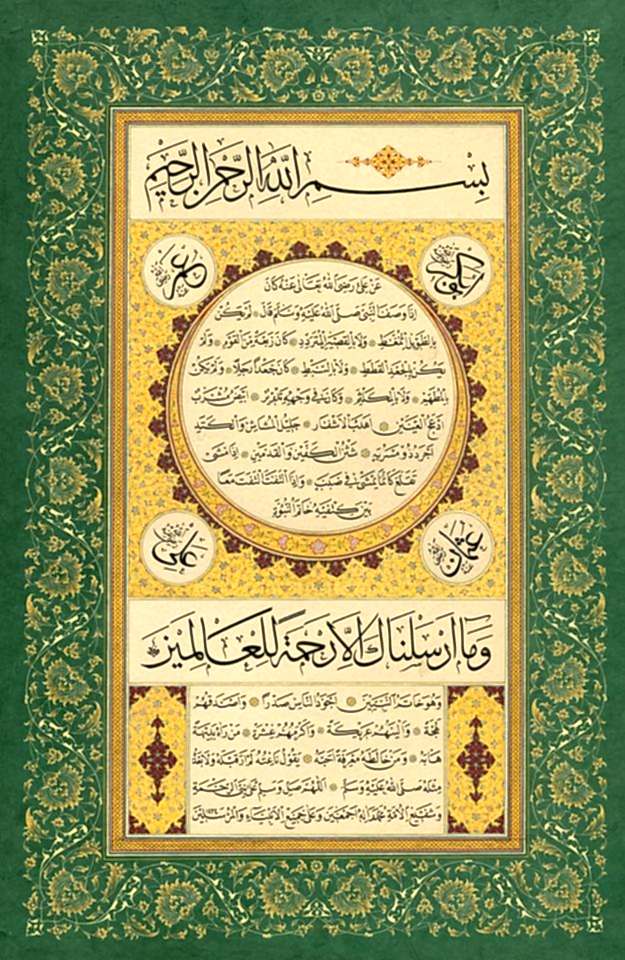 بسم الله الرحمن الرحيم
أبو بكر
عمر
عن علي رضي الله تعالى عنه كان
إذا وصف النبي صلى الله عليه وسلم قال لم يكن
بالطويل الممغط ولا بالقصير المتردد كان ربعة من القوم ولم
يكن بالجعد القطط ولا بالسبط كان جعدا رجلا ولم يكن
بالمطهم ولا بالمكلثم وكان في وجهه تدوير أبيض مشرب
أدعج العينين أهدب الأشفار جليل المشاش والكتد
أجرد ذو مسربة شثن الكفين والقدمين إذا مشى
تقلع كأنما يمشي في صبب وإذا التفت التفت معا
بين كتفيه خاتم النبوة
عثمان
علي
وما أرسلناك إلا رحمة للعالمين
وهو خاتم النبيين أجود الناس صدرا وأصدقهم
لهجة وألينهم عريكة وأكرمهم عشرة من رآه بديهة
هابه ومن خالطه معرفة أحبه يقول ناعته لم أر قبله ولا بعده
مثله صلى الله عليه وسلم اللهم صل وسلم على نبي الرحمة
وشفيع الأمة محمد وآله أجمعين وعلى جميع الأنبياء والمرسلين